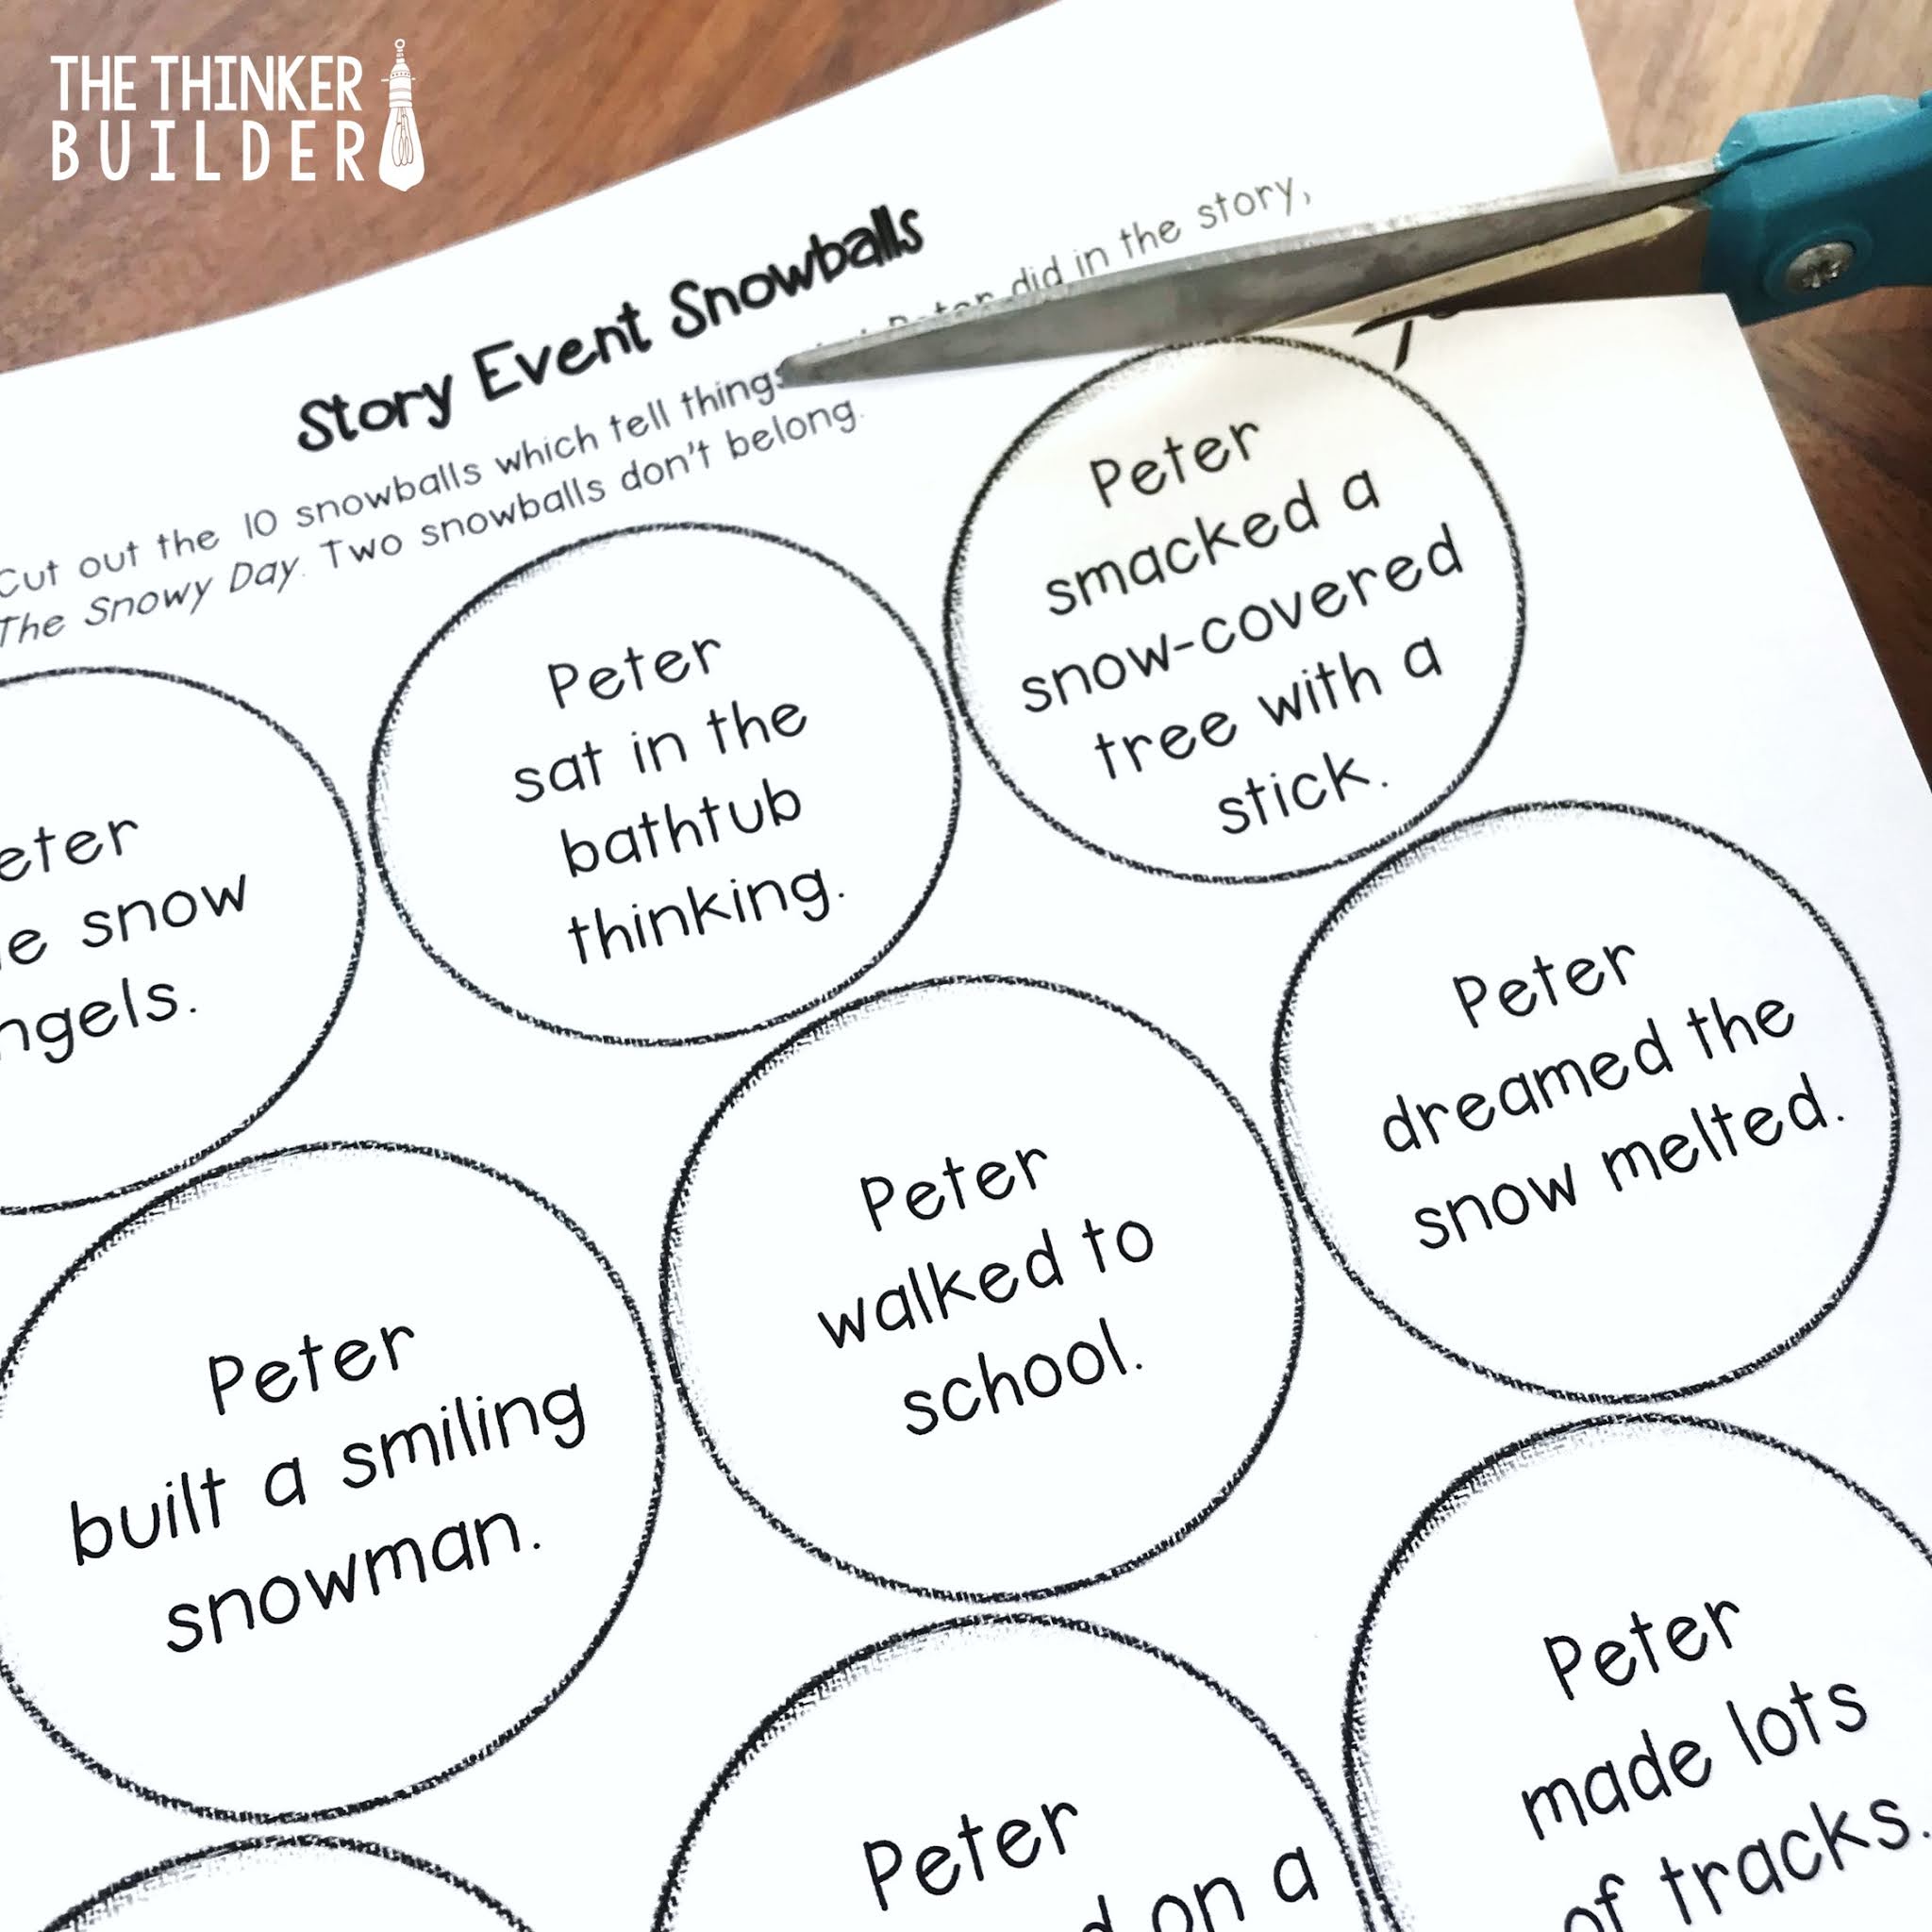 THE THINKER
BUILDER
Story Event Snowballs
Cut out the 10 snowballs which tell things Peter did in the story,
The Snowy Day. Two snowballs don't belong.
eter
e snow
ngels.
Peter
sat in the
bathtub
thinking.
Peter
smacked a
snow-covered
tree with a
stick.
Peter
built a smiling
snowman.
Peter
walked to
school.
Peter
dreamed the
snow melted.
Peter
on a
Peter
made lots
of tracks.